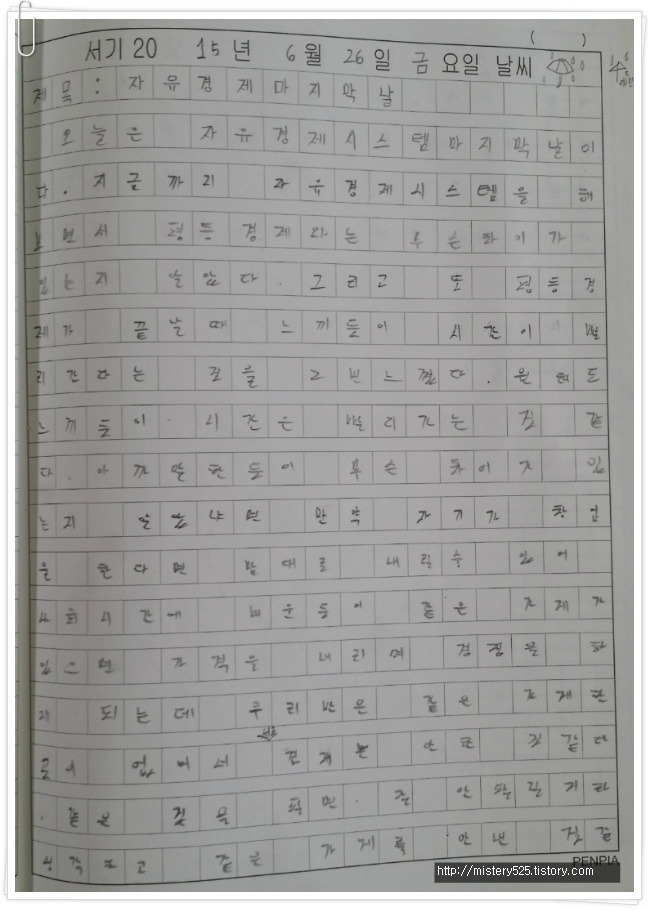 서기 20 15 년 6 월 26 일 금 요일 날씨 ( )
제목: 자유경제마지막날
오늘은 자유경제시스템마지막날이
다. 지금까지 자유경제시스템을 해
보면서 평등경제와는 무슨차이가
있는지 알았다. 그리고 또 평등경
제가 끝날때 느끼듯이 시간이 빨
리간다는 것을 느꼈다.
느끼듯이 시간은 빨리가는 것 같
다. 아까말한듯이 무슨 차이가 있
는지 알았냐면 만약 자기가 창업
을 한다면 맘대로 내릴수 있어
사회시간에 배운듯이 같은
있으면 가격을 내리며 경쟁을 하
게 되는데 우리반은 같은 가게
없어서 안 한 것 같다
. 같은 것을 팔면 잘 안팔릴거라
생각하고 같은 가게를 안낸 것 같
PENPIA
http://mistery525.tistory.com